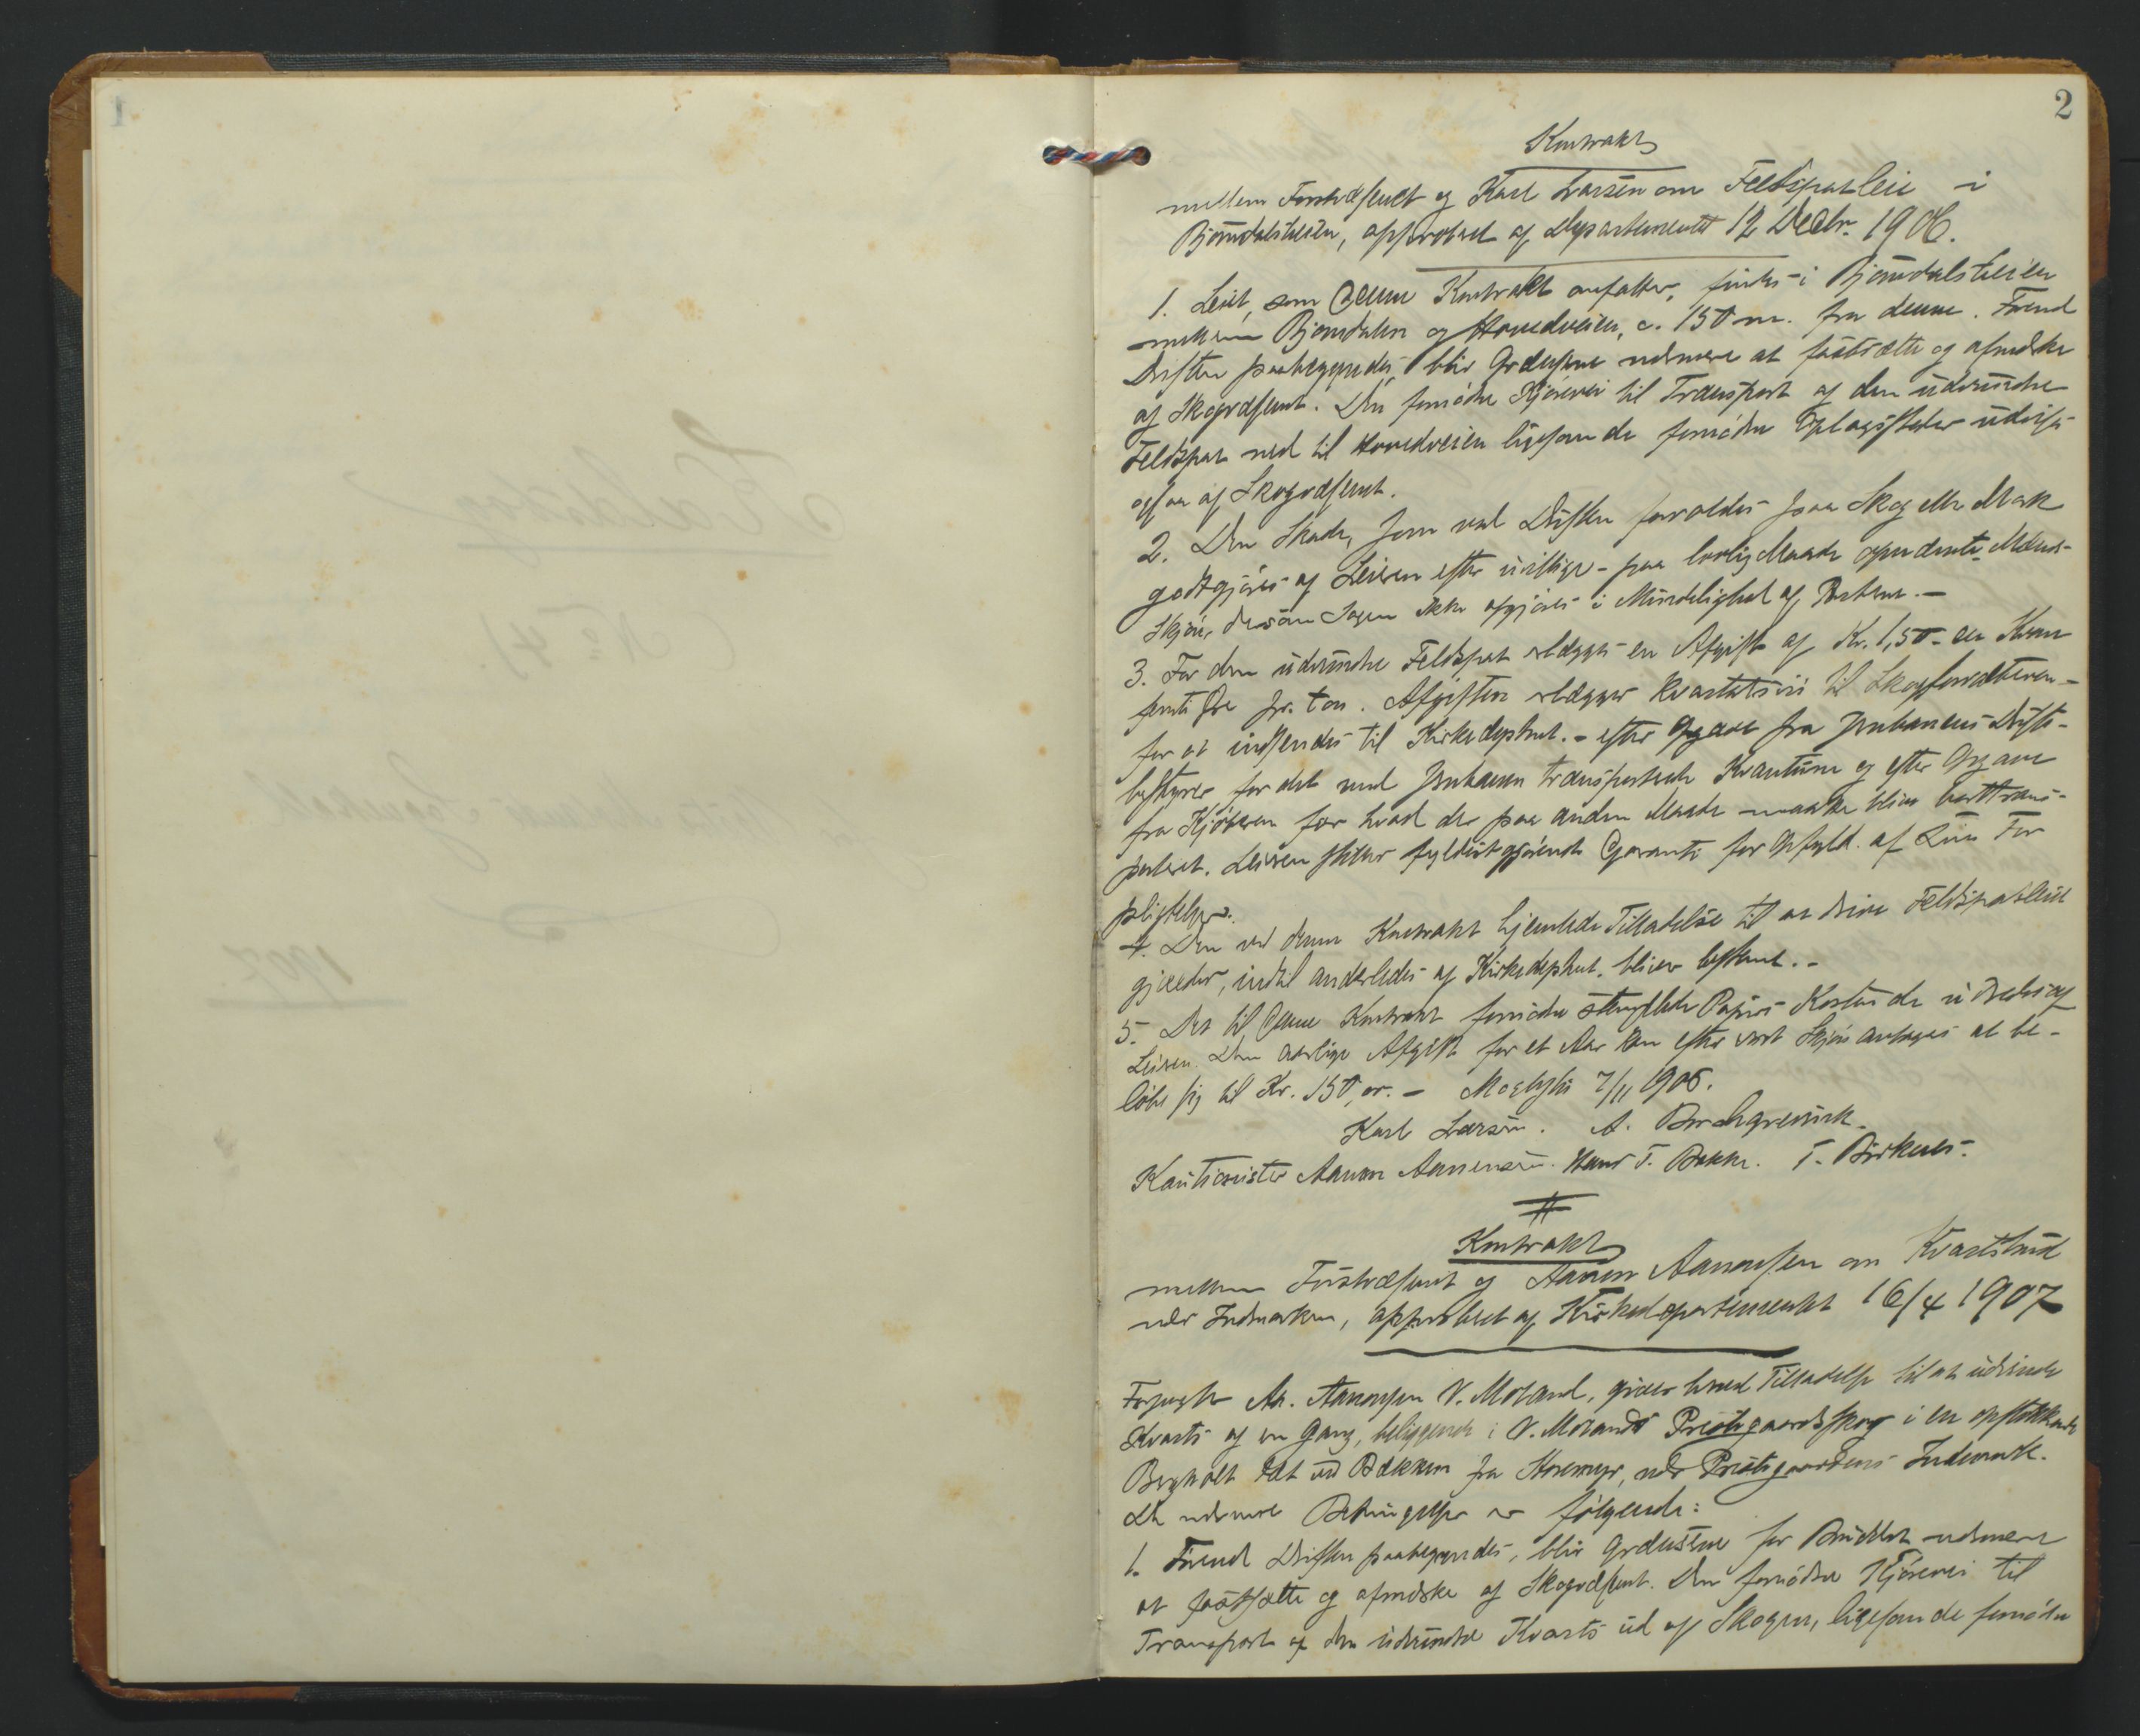 1
2
Kontrakt
mellem Forstvæsenet og Karl Larsen om Feldspatleie i
Bjørndalsteien, approberet af Departementet 12 Decbr. 1906.
1. Leiet, som denne Kontrakt omfatter, findes i Bjørndalsteien
mellem Bjørndalen og Hovedveien, c. 150 m. fra denne. Førend
Driften paabegyndes, blir Grænserne nærmere at fastsætte og afmærke
af Skogvæsenet. Den fornødne Kjørevei til Transport af den udvundne
Feldspat ned til Hovedveien ligesom de fornødne Oplagssteder udvises
ogsaa af Skogvæsenet.
2. Den Skade, som ved Driften forvoldes paa Skog eller Mark
godtgjøres af Leieren efter uvillige paa lovlig Maade opnævnte Mænds
Skjøn, dersom Sagen ikke afgjøres i Mindelighed af Parterne. –
3. For den udvundne Feldspat erlægges en Afgift af Kr. 1,50 – en Krone
femti Øre pr. ton. Afgiften erlægges kvartalsvis til Skogforvalteren –
for at indsendes til Kirkedeptmt. – efter Opgave fra Jernbanens Drifts-
bestyrer for det med Jernbanen transporterede Kvantum og efter Opgave
fra Kjøberen for hvad der paa anden Maade maatte blive borttrans-
porteret. Leieren stiller fyldestgjørende Garanti for Opfyld. af sine For
pligtelser.
4. Den ved denne Kontrakt hjemlede Tilladelse til at drive Feldspatleiet
gjælder, indtil anderledes af Kirkedeptmt. bliver bestemt. –
5. Det til denne Kontrakt fornødne stemplede Papirs Kostende udredes af
Leieren. Den aarlige Afgift for et Aar kan efter vort Skjøn antages at be-
løbe sig til Kr. 150, or. – 7/11 1906.
Karl Larsen. A.
Kautionister Aanon Aanensen. Hans T. Bakke. T. Birkenes.
Kontrakt
mellem Forstvæsenet og Aanon Aanonsen om Kvartsbrud
nær Indmarken, approberet af Kirkedepartementet 16/4 1907
Forpagter Aa. Aanonsen V. Moland, gives herved Tilladelse til at udvinde
Kvarts af en Gang, beliggende i V. Molands Prestegaardsskog i en opstikkende
Bergknat tæt ved Bækken fra, nær Prestegaardens Indmark.
De nærmere Betingelser er følgende:
1. Førend Driften paabegyndes, blir Grænserne for Bruddet nærmere
at fastsætte og afmærke af Skogvæsenet. Den fornødne Kjørevei til
Transport af den udvundne Kvarts ud af Skogen, ligesom de fornødne